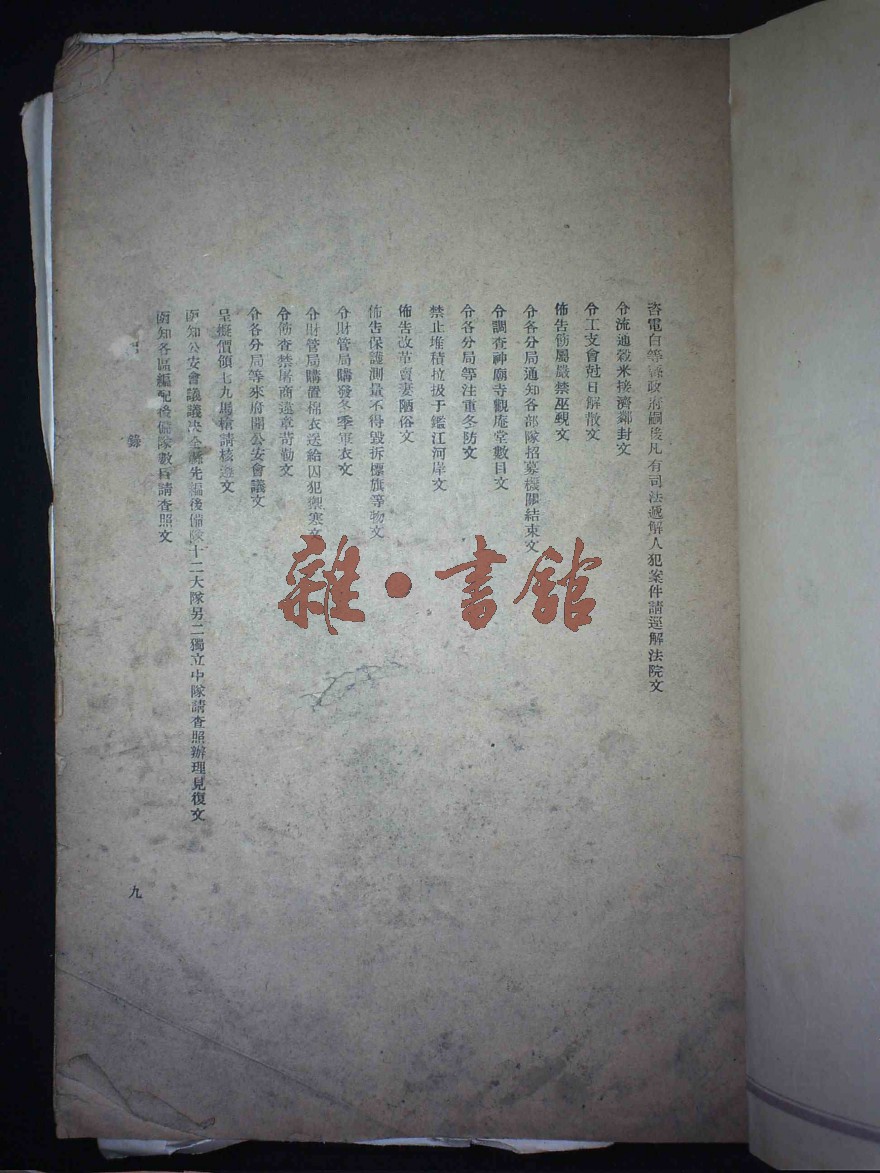 咨電白等縣政府嗣後凡有司法遞解人犯案件請逕解法院文
令流通穀米接濟鄰封文
令工支會尅日解散文
佈告飭屬嚴禁巫覡文
令各分局通知各部隊招募機關結束文
令調查神廟寺觀庵堂數目文
令各分局等注重冬防文
禁止堆積垃圾于鑑江河岸文
佈告改革賣妻陋俗文
佈告保護測量不得毀拆標旗等物文
令財管局購發冬季軍衣文
令財管局購置棉衣送給囚犯禦寒文
令飭查禁屠商違章苛勒文
令各分局等來府開公安會議文
呈擬價領七九馬槍請核遵文
函知公安會議議決全縣先編後備隊十二大隊另二獨立中隊請查照辦理見復文
函知各區編配後備隊數目請查照文
錄
九
雜·書館